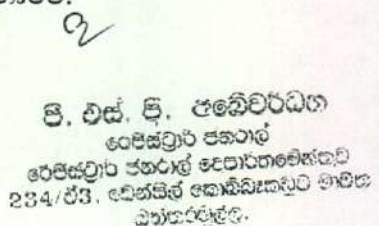 පී. එස්. පී. අබේවර්ධන
රෙජිස්ට්‍රාර් ජනරාල්
රෙජිස්ට්‍රාර් ජනරාල් දෙපාර්තමේන්තුව
234/ඒ3, ඩෙන්සිල් කොබ්බෑකඩුව මාවත
බත්තරමුල්ල.